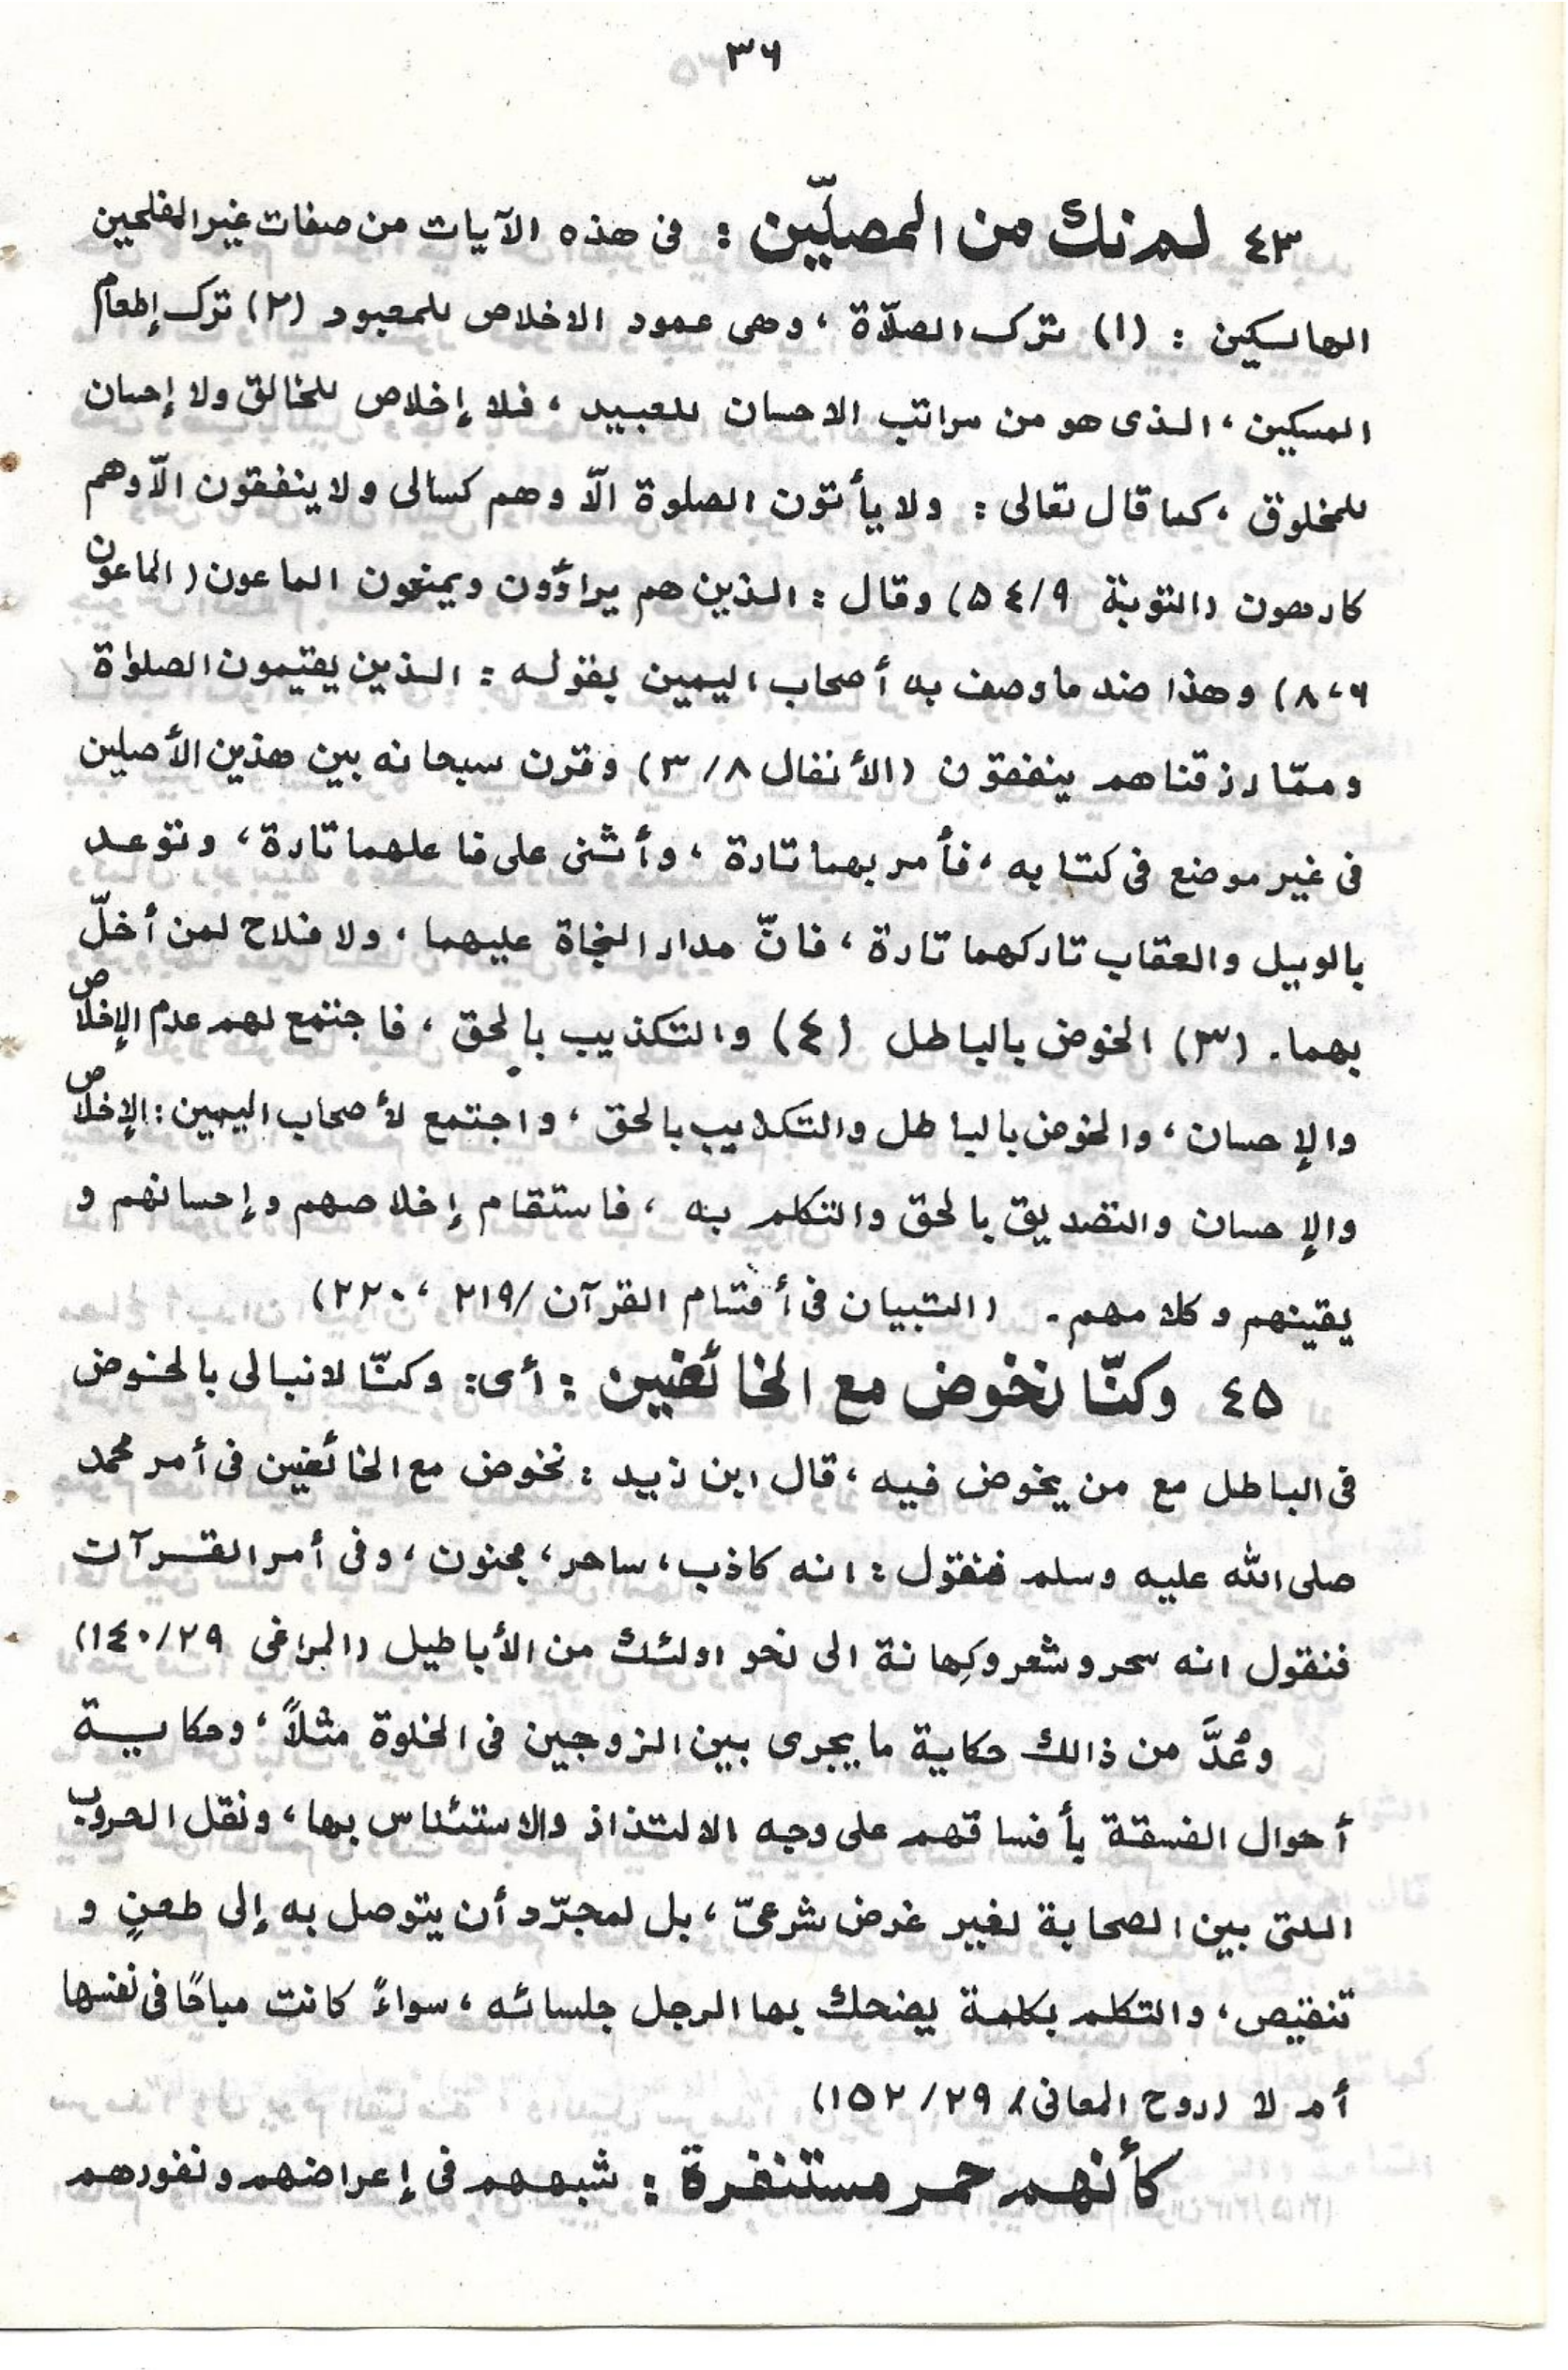 ٣٦
٤٣ لم نك من المصلّين : فى هذه الآيات من صفات غير المفلحين
الهالكين : (١) ترك الصلّاة ، وهى عمود الاخلاص للمعبود (٢) ترك إطعام
المسكين ، الذى هو من مراتب الاحسان للعبيد ، فلا إخلاص للخالق ولا إحسان
للمخلوق ، كما قال تعالى : ولا يأتون الصلوة الّا وهم كسالى ولا ينفقون الّا وهم
كارهون (التوبة ٥٤/٩) وقال : الذين هم يراؤون ويمنعون الماعون (الماعون
٨،٦) وهذا ضد ما وصف به أصحاب اليمين بقوله : الذين يقيمون الصلواة
وممّا رزقناهم ينفقون (الأنفال ٣/٨) وقرن سبحانه بين هذين الأصلين
فى غير موضع فى كتابه ، فأمر بهما تارة ، وأثنى على فاعلهما تارة ، وتوعد
بالويل والعقاب تاركهما تارة ، فانّ مدار النجاة عليهما ، ولا فلاح لمن أخلّ
بهما . (٣) الخوض بالباطل (٤) والتكذيب بالحق ، فاجتمع لهم عدم الإخلاص
والإحسان ، والخوض بالباطل والتكذيب بالحق ، واجتمع لأصحاب اليمين : الإخلاص
والإحسان والتصديق بالحق والتكلم به ، فاستقام إخلاصهم وإحسانهم و
يقينهم وكلامهم . (التبيان فى أقسام القرآن /٢١٩ ، ٢٢٠)
٤٥ وكنّا نخوض مع الخائضين : أى : وكنّا لا نبالى بالخوض
فى الباطل مع من يخوض فيه ، قال ابن زيد : نخوض مع الخائضين فى أمر محمد
صلى الله عليه وسلم فنقول : انه كاذب ، ساحر ، مجنون ، وفى أمر القرآن
فنقول انه سحر وشعر وكِهانة الى نحو اولئك من الأباطيل (المراغى ١٤٠/٢٩)
وعُدَّ من ذالك حكاية ما يجرى بين الزوجين فى الخلوة مثلاً ، وحكاية
أحوال الفسقة بأفساقهم على وجه الالتذاذ والاستئناس بها ، ونقل الحروب
اللتى بين الصحابة لغير غرض شرعىّ ، بل لمجرّد أن يتوصل به إلى طعنٍ و
تنقيص ، والتكلم بكلمة يضحك بها الرجل جلسائه ، سواءً كانت مباحًا فى نفسها
أم لا (روح المعانى/ ١٥٢/٢٩)
كأنهم حمر مستنفرة : شبههم فى إعراضهم ونفورهم